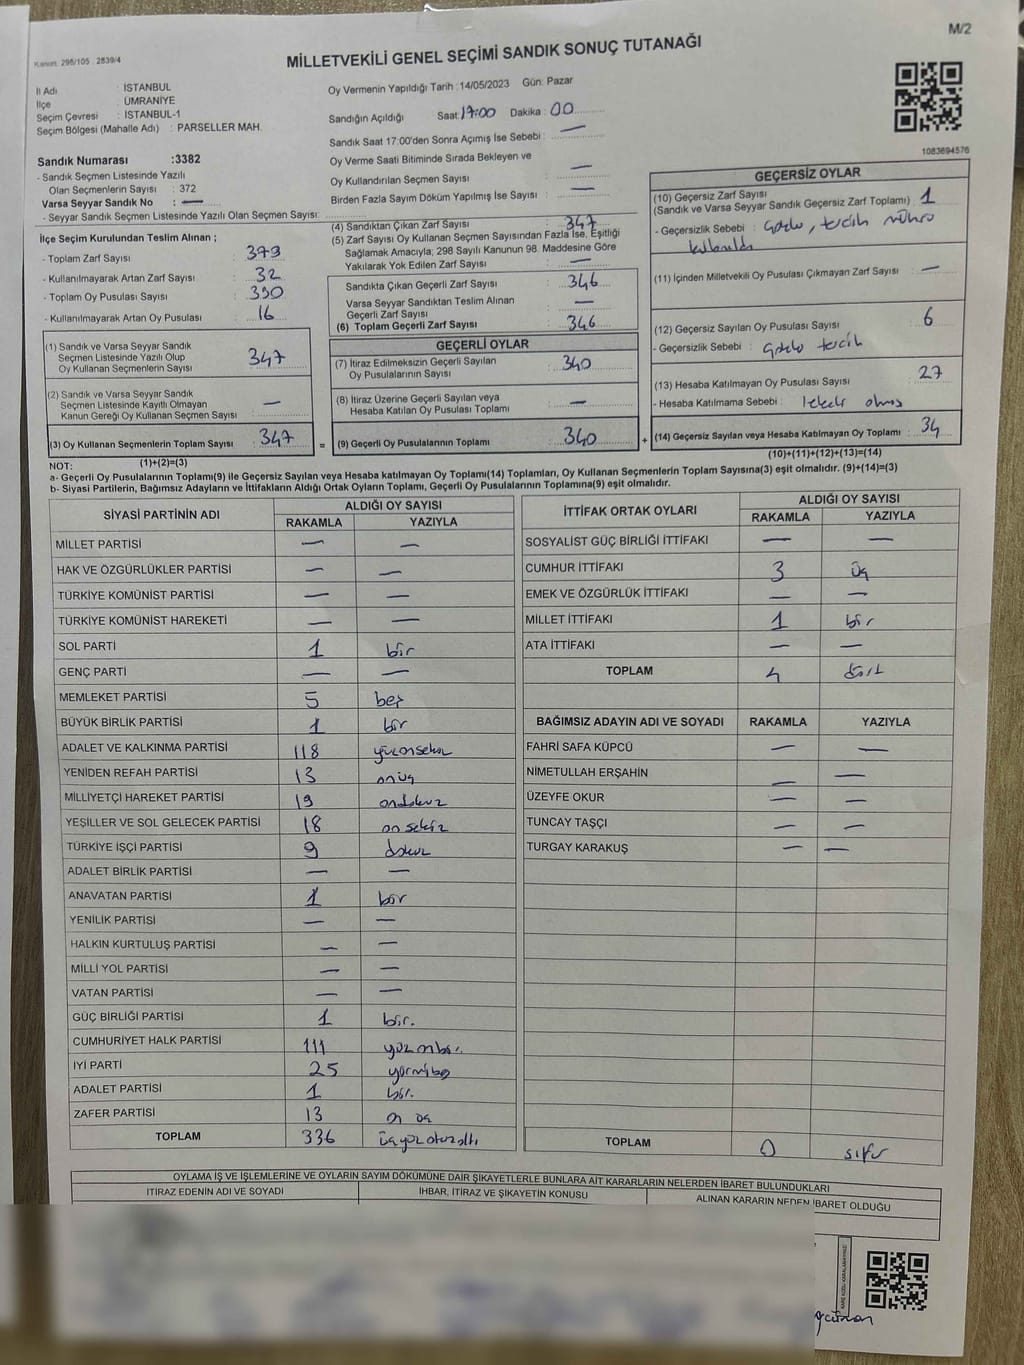 M/2
Kanun: 298/105 2839/4
MİLLETVEKİLİ GENEL SEÇİMİ SANDIK SONUÇ TUTANAĞI
İl Adı : İSTANBUL
İlçe : ÜMRANİYE
Seçim Çevresi : İSTANBUL-1
Seçim Bölgesi (Mahalle Adı) : PARSELLER MAH.
Sandık Numarası :3382
- Sandık Seçmen Listesinde Yazılı
Olan Seçmenlerin Sayısı : 372
Varsa Seyyar Sandık No : —
- Seyyar Sandık Seçmen Listesinde Yazılı Olan Seçmen Sayısı:
Oy Vermenin Yapıldığı Tarih :14/05/2023 Gün: Pazar
Sandığın Açıldığı Saat: 17:00 Dakika: 00
Sandık Saat 17:00'den Sonra Açımış İse Sebebi : —
Oy Verme Saati Bitiminde Sırada Bekleyen ve
Oy Kullandırılan Seçmen Sayısı : —
Birden Fazla Sayım Döküm Yapılmış İse Sayısı : —
1083694576
İlçe Seçim Kurulundan Teslim Alınan ;
- Toplam Zarf Sayısı : 379
- Kullanılmayarak Artan Zarf Sayısı : 32
- Toplam Oy Pusulası Sayısı : 390
- Kullanılmayarak Artan Oy Pusulası : 16
(1) Sandık ve Varsa Seyyar Sandık
Seçmen Listesinde Yazılı Olup
Oy Kullanan Seçmenlerin Sayısı : 347
(2) Sandık ve Varsa Seyyar Sandık
Seçmen Listesinde Kayıtlı Olmayan
Kanun Gereği Oy Kullanan Seçmen Sayısı : —
(3) Oy Kullanan Seçmenlerin Toplam Sayısı : 347
(1)+(2)=(3)
(4) Sandıktan Çıkan Zarf Sayısı : 347
(5) Zarf Sayısı Oy Kullanan Seçmen Sayısından Fazla İse, Eşitliği
Sağlamak Amacıyla; 298 Sayılı Kanunun 98. Maddesine Göre
Yakılarak Yok Edilen Zarf Sayısı : —
Sandıkta Çıkan Geçerli Zarf Sayısı : 346
Varsa Seyyar Sandıktan Teslim Alınan
Geçerli Zarf Sayısı : —
(6) Toplam Geçerli Zarf Sayısı : 346
GEÇERLİ OYLAR
(7) İtiraz Edilmeksizin Geçerli Sayılan
Oy Pusulalarının Sayısı : 340
(8) İtiraz Üzerine Geçerli Sayılan veya
Hesaba Katılan Oy Pusulası Toplamı : —
= (9) Geçerli Oy Pusulalarının Toplamı : 340
GEÇERSİZ OYLAR
(10) Geçersiz Zarf Sayısı : 1
(Sandık ve Varsa Seyyar Sandık Geçersiz Zarf Toplamı)
- Geçersizlik Sebebi : tercih mührü
(11) İçinden Milletvekili Oy Pusulası Çıkmayan Zarf Sayısı : —
(12) Geçersiz Sayılan Oy Pusulası Sayısı : 6
- Geçersizlik Sebebi : tercih
(13) Hesaba Katılmayan Oy Pusulası Sayısı : 27
- Hesaba Katılmama Sebebi : lekeli olmas
+ (14) Geçersiz Sayılan veya Hesaba Katılmayan Oy Toplamı : 34
(10)+(11)+(12)+(13)=(14)
NOT:
a- Geçerli Oy Pusulalarının Toplamı(9) ile Geçersiz Sayılan veya Hesaba katılmayan Oy Toplamı(14) Toplamları, Oy Kullanan Seçmenlerin Toplam Sayısına(3) eşit olmalıdır. (9)+(14)=(3)
b- Siyasi Partilerin, Bağımsız Adayların ve İttifakların Aldığı Ortak Oyların Toplamı, Geçerli Oy Pusulalarının Toplamına(9) eşit olmalıdır.
SİYASİ PARTİNİN ADI ALDIĞI OY SAYISI
RAKAMLA YAZIYLA
MİLLET PARTİSİ — —
HAK VE ÖZGÜRLÜKLER PARTİSİ — —
TÜRKİYE KOMÜNİST PARTİSİ — —
TÜRKİYE KOMÜNİST HAREKETİ — —
SOL PARTİ 1 bir
GENÇ PARTİ — —
MEMLEKET PARTİSİ 5 beş
BÜYÜK BİRLİK PARTİSİ 1 bir
ADALET VE KALKINMA PARTİSİ 118 yüzonsekiz
YENİDEN REFAH PARTİSİ 13 onüç
MİLLİYETÇİ HAREKET PARTİSİ 19 ondokuz
YEŞİLLER VE SOL GELECEK PARTİSİ 18 on sekiz
TÜRKİYE İŞÇİ PARTİSİ 9 dokuz
ADALET BİRLİK PARTİSİ — —
ANAVATAN PARTİSİ 1 bir
YENİLİK PARTİSİ — —
HALKIN KURTULUŞ PARTİSİ — —
MİLLİ YOL PARTİSİ — —
VATAN PARTİSİ — —
GÜÇ BİRLİĞİ PARTİSİ 1 bir.
CUMHURİYET HALK PARTİSİ 111 yüz onbir.
İYİ PARTİ 25 yirmibeş
ADALET PARTİSİ 1 bir.
ZAFER PARTİSİ 13 on üç
TOPLAM 336 üçyüzotuzaltı
İTTİFAK ORTAK OYLARI ALDIĞI OY SAYISI
RAKAMLA YAZIYLA
SOSYALİST GÜÇ BİRLİĞİ İTTİFAKI — —
CUMHUR İTTİFAKI 3 üç
EMEK VE ÖZGÜRLÜK İTTİFAKI — —
MİLLET İTTİFAKI 1 bir
ATA İTTİFAKI — —
TOPLAM 4 dört
BAĞIMSIZ ADAYIN ADI VE SOYADI RAKAMLA YAZIYLA
FAHRİ SAFA KÜPCÜ — —
NİMETULLAH ERŞAHİN — —
ÜZEYFE OKUR — —
TUNCAY TAŞÇI — —
TURGAY KARAKUŞ — —
TOPLAM 0 sıfır
OYLAMA İŞ VE İŞLEMLERİNE VE OYLARIN SAYIM DÖKÜMÜNE DAİR ŞİKAYETLERLE BUNLARA AİT KARARLARIN NELERDEN İBARET BULUNDUKLARI
İTİRAZ EDENİN ADI VE SOYADI İHBAR, İTİRAZ VE ŞİKAYETİN KONUSU ALINAN KARARIN NEDEN İBARET OLDUĞU